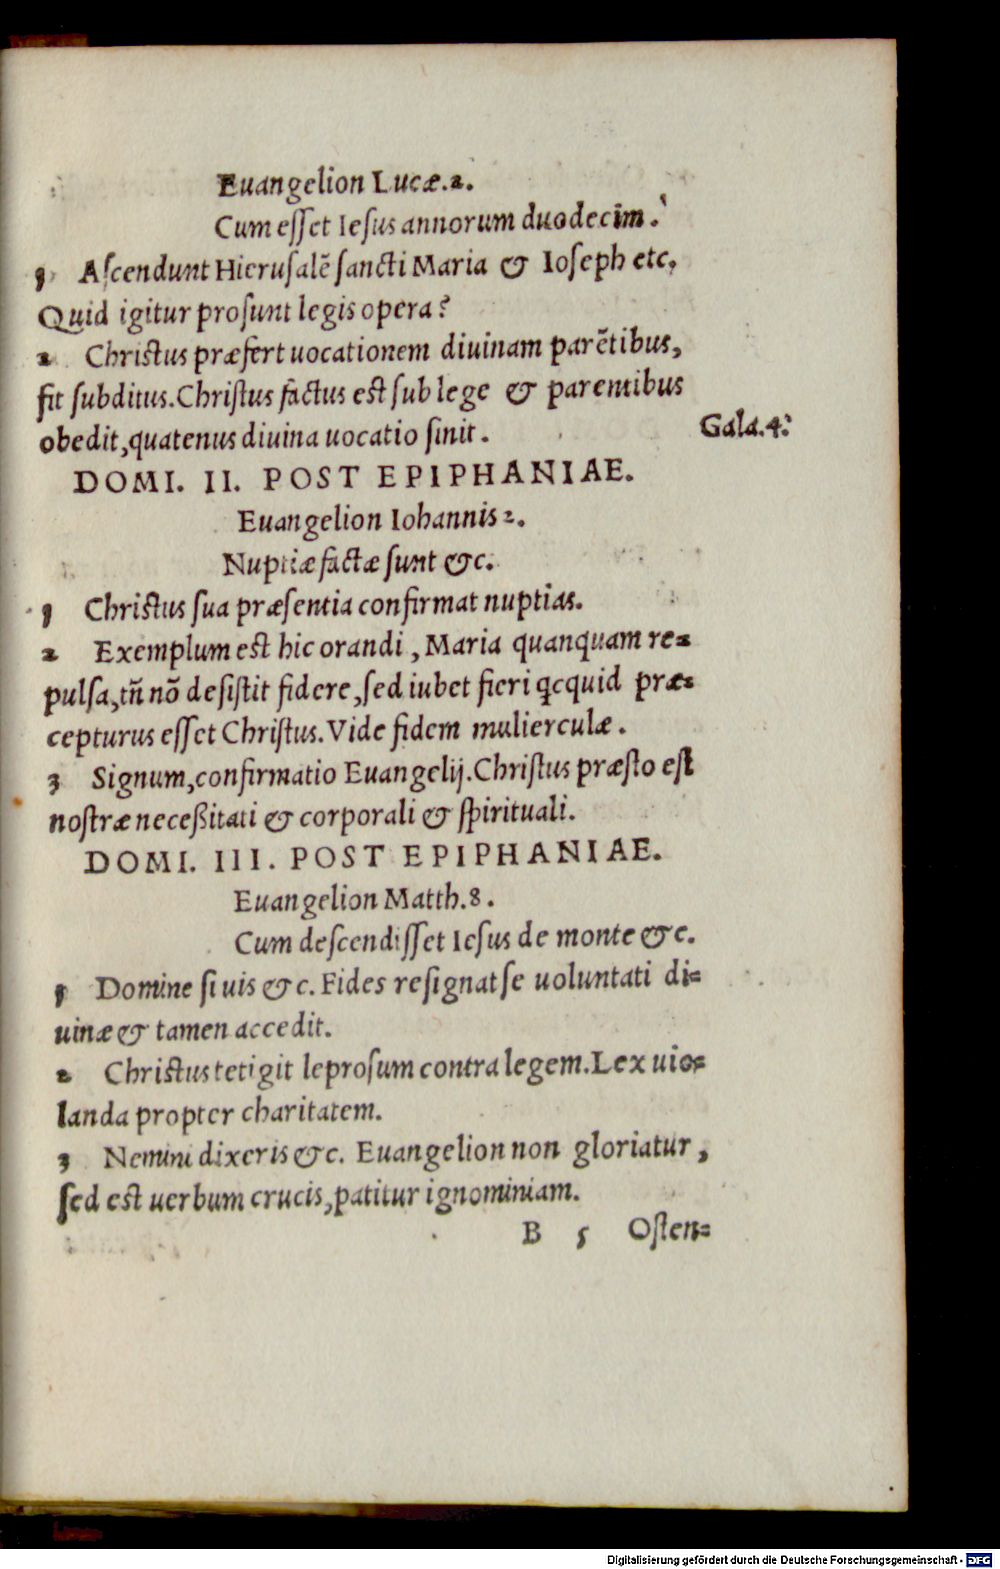 Euangelion Lucæ.2.
Cum eſſet Ieſus annorum duodecim.
1 Aſcendunt Hieruſalẽ ſancti Maria & Ioſeph etc.
Quid igitur proſunt legis opera?
2 Chriſtus præfert uocationem diuinam parẽtibus,
fit ſubditus.Chriſtus factus eſt ſub lege & parentibus
obedit,quatenus diuina uocatio ſinit.
Gala.4.
DOMI. II. POST EPIPHANIAE.
Euangelion Iohannis 2.
Nuptiæ factæ ſunt &c.
1 Chriſtus ſua præſentia confirmat nuptias.
2 Exemplum eſt hic orandi, Maria quanquam re=
pulſa,tñ nõ deſiſtit fidere,ſed iubet fieri qcquid præ=
cepturus eſſet Chriſtus.Vide fidem mulierculæ.
3 Signum,confirmatio Euangelij.Chriſtus præſto eſt
noſtræ neceßitati & corporali & ſpirituali.
DOMI. III. POST EPIPHANIAE.
Euangelion Matth.8.
Cum deſcendiſſet Ieſus de monte &c.
1 Domine ſi uis &c. Fides reſignat ſe uoluntati di=
uinæ & tamen accedit.
2 Chriſtus tetigit leproſum contra legem.Lex uio=
landa propter charitatem.
3 Nemini dixeris &c. Euangelion non gloriatur,
ſed eſt uerbum crucis,patitur ignominiam.
B 5 Oſten=
Digitalisierung gefördert durch die Deutsche Forschungsgemeinschaft - DFG